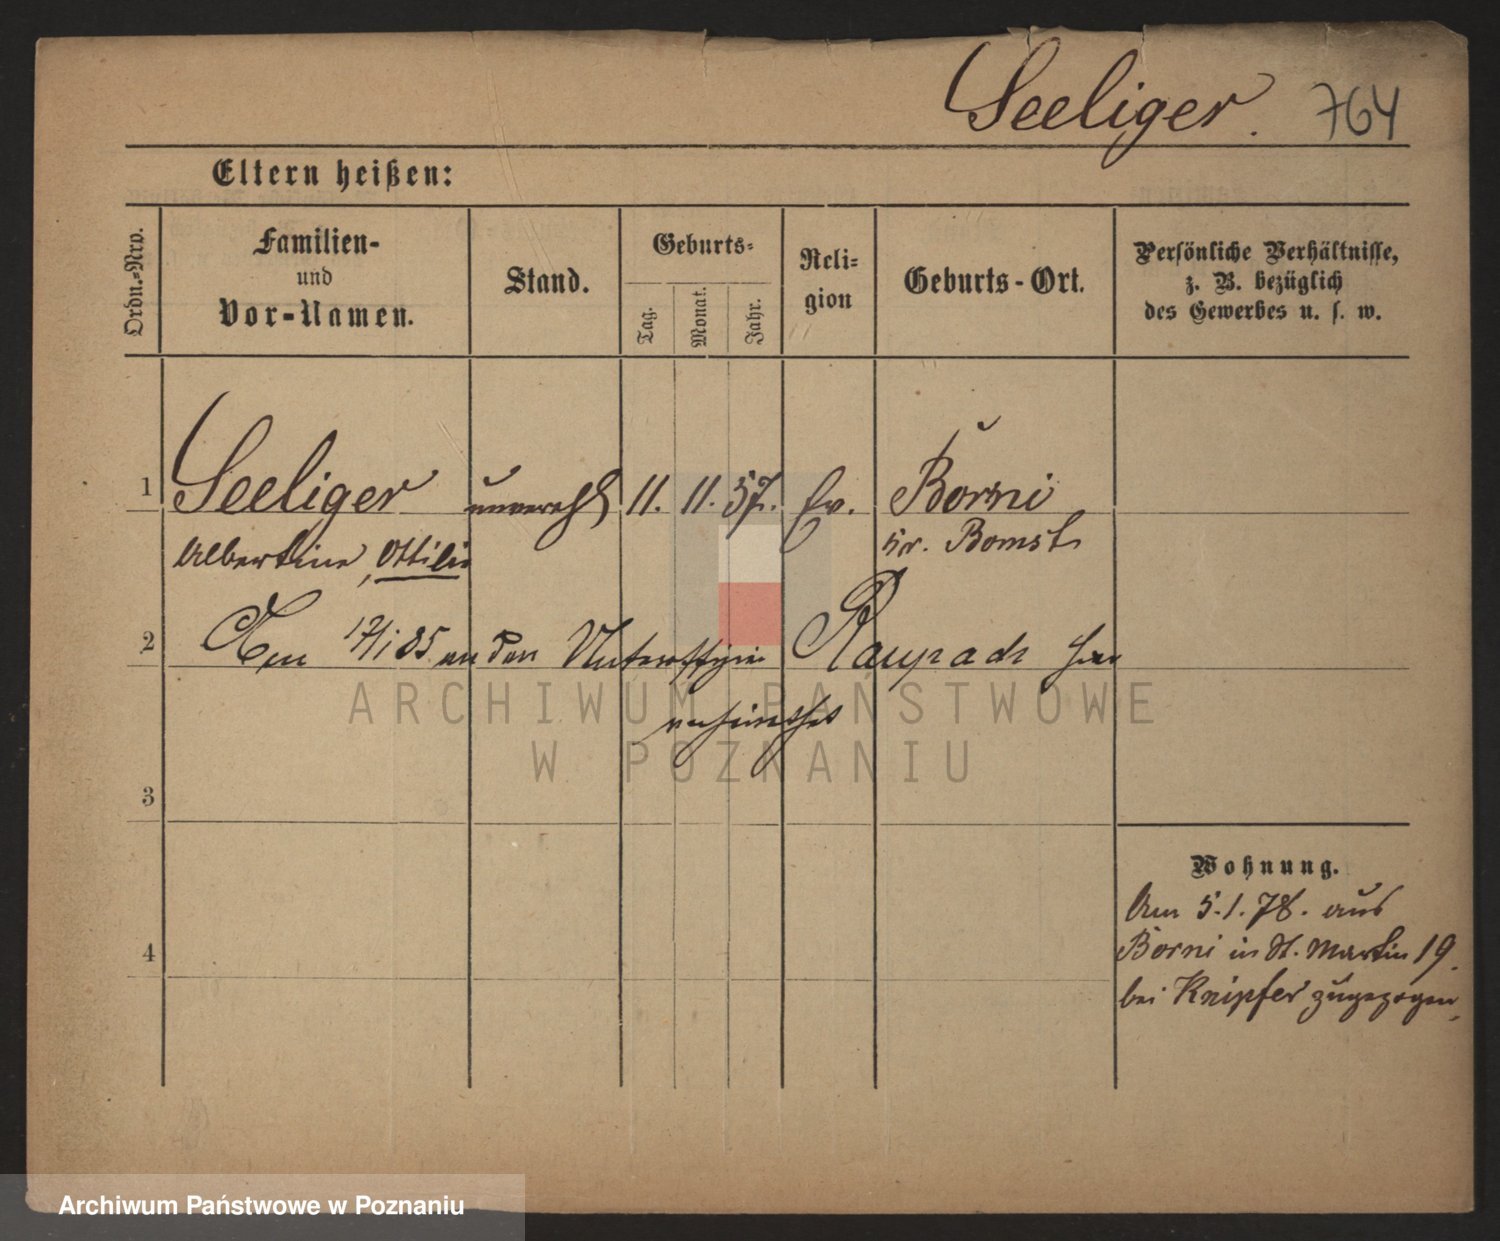 Seeliger. 764
Eltern heißen:
Ordn.=Nro.
Familien-
und
Vor-Namen.
Stand.
Geburts=
Tag.
Monat.
Jahr.
Reli=
gion
Geburts-Ort.
Persönliche Verhältnisse,
z. B. bezüglich
des Gewerbes u. s. w.
1 Seeliger unverehl 11. 11. 57. Ev. Borni
Albertine, Ottilie Kr. Bomst
2 Am 12/1 85 an den Unteroffizier Raupach hier
verheirathet
ARCHIWUM PAŃSTWOWE
W POZNANIU
3
Wohnung.
Am 5.1.78. aus
4 Borni in St. Martin 19.
bei Knipfer zugezogen.
Archiwum Państwowe w Poznaniu